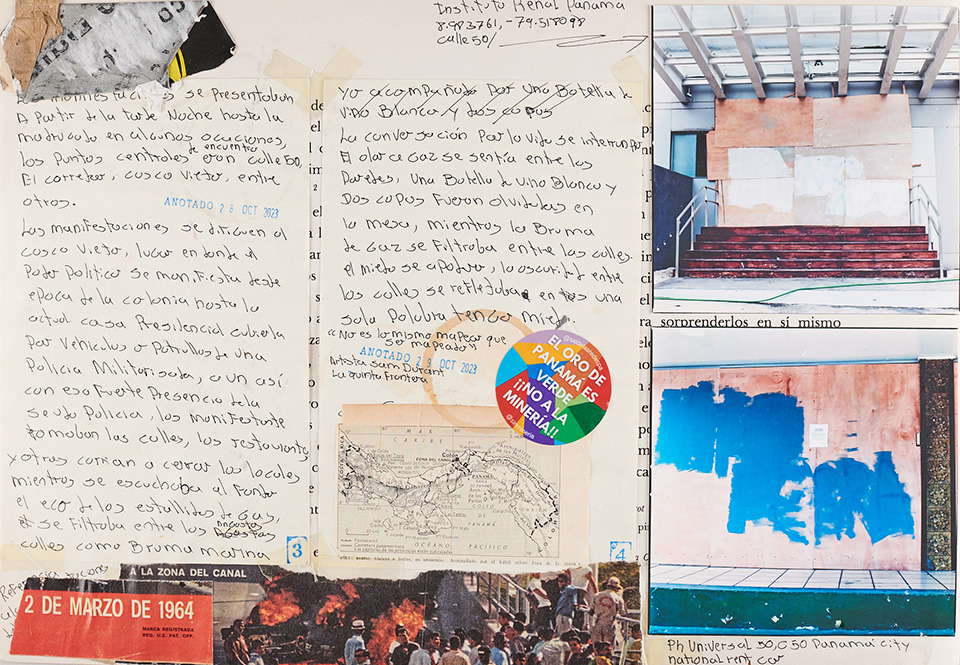 Instituto Renal Panama
8.983761, -79.518098
calle 50/
manifestaciones se presentaban
A partir de la tarde Noche hasta la
madrugada en algunas ocaciones,
los puntos centrales se encuentra eran calle 50,
El corredor, casco viejo, entre
otros.
ANOTADO 28 OCT 2023
Las manifestaciones se dirigen al
casco viejo, lugar en donde el
Poder Politico se manifiesta desde
epoca de la colonia hasta la
actual casa Presidencial cubierta
por vehiculos o patrullas de una
Policia Militarizada, aun asi
con esa fuerte presencia de la
Policia, los manifestante
tomaban las calles, los restaurantes
y otros corrian a cerrar los locales
mientras se escuchaba al fondo
el eco de los estallidos de gas,
se filtraba entre las angostas
calles como Bruma marina
3
yo acompañado por una Botella de
vino Blanco y dos copas
La conversación por la vida se interrumpia
El olor a Gaz se sentia entre las
paredes, una Botella de vino Blanco y
Dos copas fueron olvidadas en
la mesa, mientras la Bruma
de Gaz se filtraba entre las calles.
el miedo se apodero, la oscuridad entre
las calles se reflejaba en una
sola palabra tengo miedo.
"No es lo mismo mapear que
ser mapeado"
ANOTADO 29 OCT 2023
Artista Sam Durant
La quinta frontera
EL ORO DE
PANAMÁ ES
VERDE
¡¡NO A LA
MINERÍA!!
MAR
CARIBE
ZONA DEL CANAL
Colón
GOLFO
DE
PANAMÁ
OCÉANO PACÍFICO
Ferrocarril
Carretera panamericana
4
sorprenderlos en sí mismo
A LA ZONA DEL CANAL
2 DE MARZO DE 1964
MARCA REGISTRADA
REG. U.S. PAT. OFF.
Ph Universal 50, C50 Panamá city
national rent car